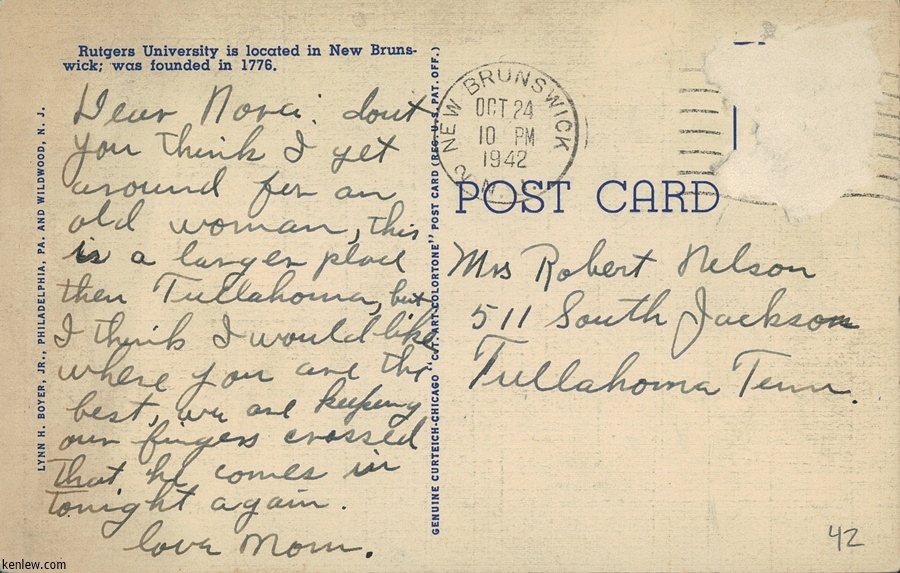 Rutgers University is located in New Bruns-
wick; was founded in 1776.
Dear Nova: dont
you think I get
around for an
old woman, this
is a larger place
then Tullahoma, but
I think I would like
where you are the
best, we are keeping
our fingers crossed
that he comes in
tonight again.
love Mom.
LYNN H. BOYER, JR., PHILADELPHIA, PA. AND WILDWOOD, N. J.
GENUINE CURTEICH-CHICAGO "C.T. ART-COLORTONE" POST CARD (REG. U.S. PAT. OFF.)
NEW BRUNSWICK
OCT 24
10 PM
1942
N.J.
POST CARD
Mrs Robert Nelson
511 South Jackson
Tullahoma Tenn.
42
kenlew.com